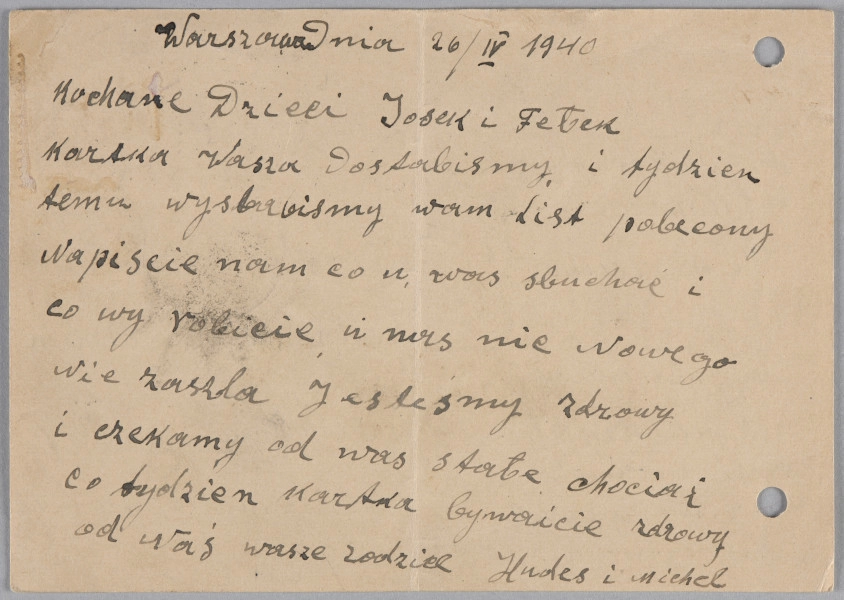 Warszawa Dnia 26/IV 1940
Kochane Dzieci Josek i Fetek
Kartka Wasza Dostaliśmy i tydzien
temu wysłaliśmy wam List polecony
Napiscie nam co u was słuchać i
co wy robicie u nas nie Nowego
Nie zaszla Jesteśmy zdrowy
i czekamy od was stałe chociaż
co tydzien kartka bywajcie zdrowy
od Naś wasze rodzice Hudes i Michel